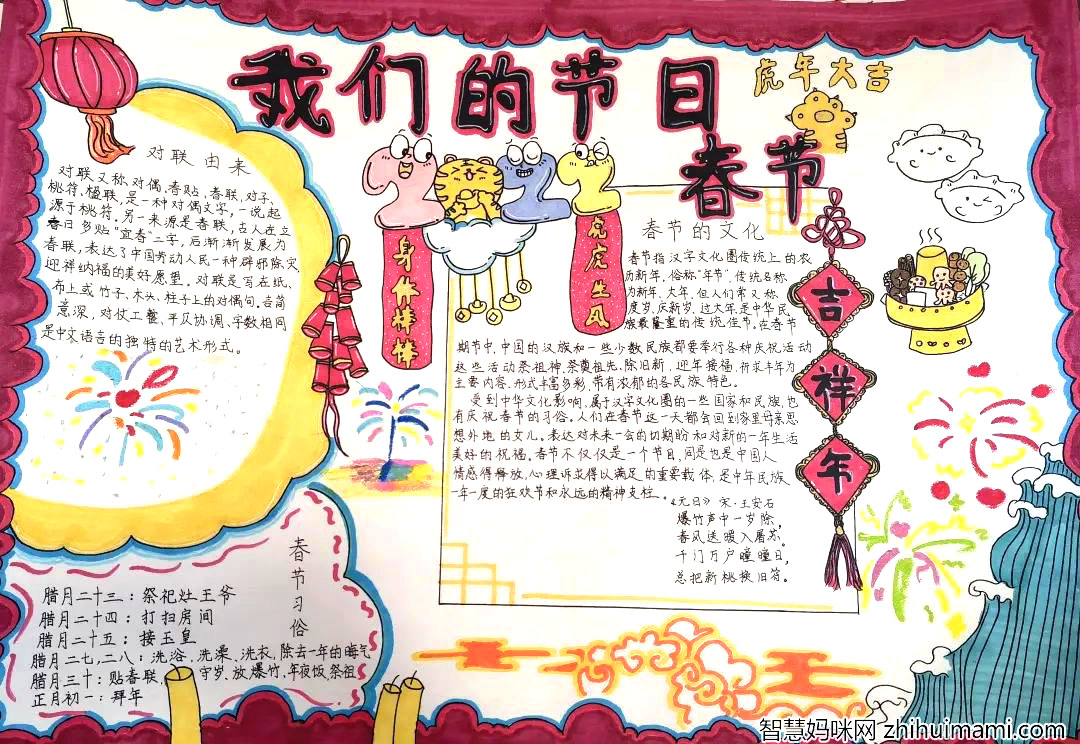 我们的节日
春节
虎年大吉
对联由来
对联又称对偶、春贴、春联、对子、
桃符、楹联、是一种对偶文学，一说起
源于桃符。另一来源是春联，古人在立
春日多贴“宜春”二字，后渐渐发展为
春联，表达了中国劳动人民一种辟邪除灾，
迎祥纳福的美好愿望。对联是写在纸、
布上或竹子、木头、柱子上的对偶句。言简
意深，对仗工整，平仄协调，字数相同
是中文语言的独特的艺术形式。
2
2
2
身体棒棒
虎虎生风
春节的文化
春节指汉字文化圈传统上的农
历新年，俗称“年节”传统名称
为新年、大年，但人们常又称，
度岁、庆新岁，过大年。是中华民
族最隆重的传统佳节。在春节
期节中，中国的汉族和一些少数民族都要举行各种庆祝活动
这些活动祭祖神，祭奠祖先，除旧新，迎年接福，祈求丰年为
主要内容。形式丰富多彩，带有浓郁的各民族特色。
受到中华文化影响，属于汉字文化圈的一些国家和民族，也
有庆祝春节的习俗。人们在春节这一天都会回到家里母亲思
想外地的女儿。表达对未来一会的切期盼和对新的一年生活
美好的祝福。春节不仅仅是一个节日，同是也是中国人
情感得释放，心理诉求得以满足的重要载体，是中年民族
一年一度的狂欢节和永远的精神支柱。
《元日》宋·王安石
爆竹声中一岁除，
春风送暖入屠苏。
千门万户曈曈日，
总把新桃换旧符。
吉
祥
年
春节习俗
腊月二十三：祭祀灶王爷
腊月二十四：打扫房间
腊月二十五：接玉皇
腊月二七，二八：洗浴、洗澡、洗衣，除去一年的晦气
腊月三十：贴春联、守岁、放爆竹、年夜饭祭祖
正月初一：拜年
智慧妈咪网 zhihuimami.com